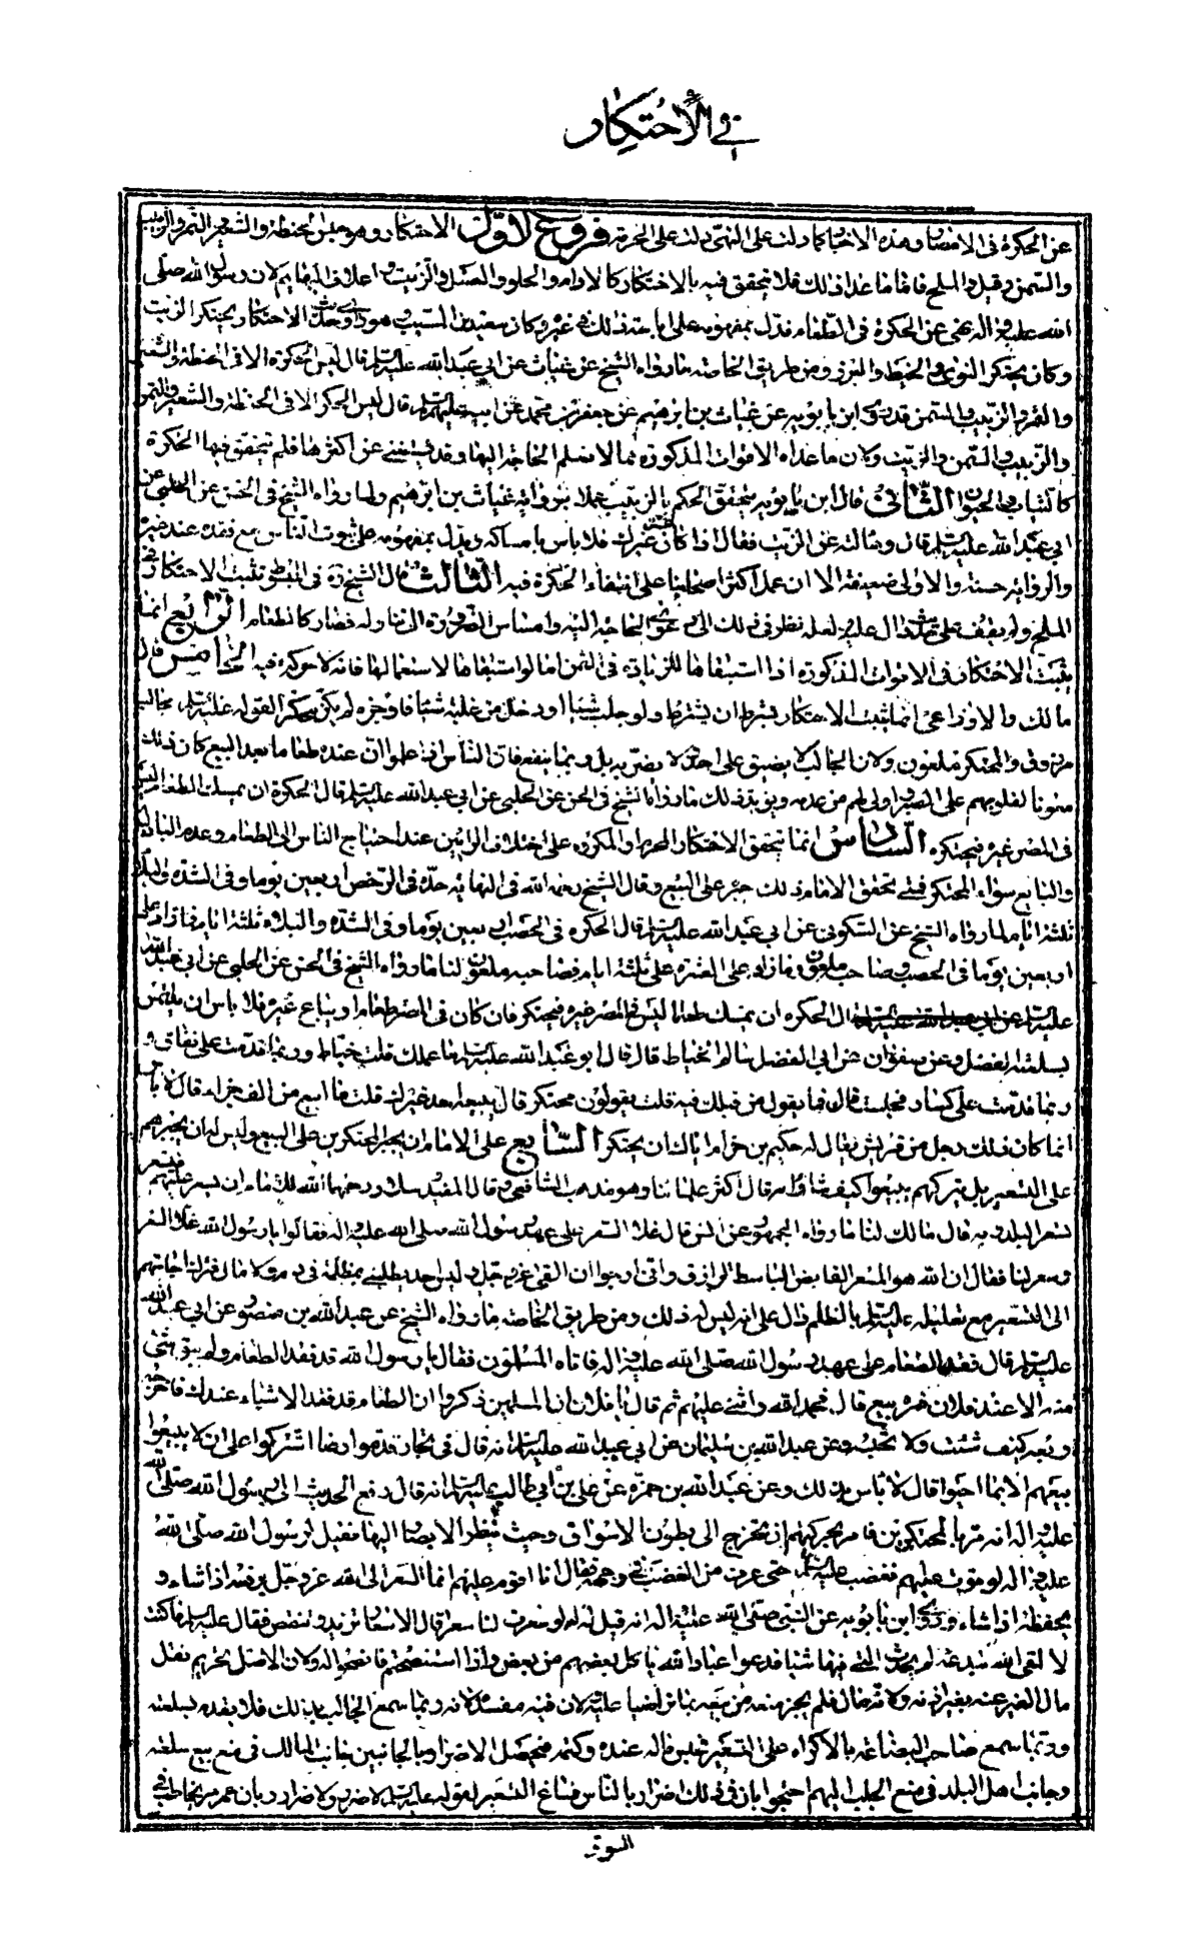 في الاحتكار
عن الحكرة في الامصار وهذه الاخبار كما دلت على النهي دلت على الحرمة فروع الاول الاحتكار وهو حبس الحنطة والشعير والتمر والزبيب
والسمن وقيل والملح فاما ما عدا ذلك فلا يتحقق فيه بالاحتكار كالادام والحلو والعسل والزيت واعلاف البهايم لان رسول الله صلى
الله عليه واله نهى عن الحكرة في الطعام فدل بمفهومه على اباحته ذلك في غيره وكان سعيد بن المسيب وهو راوي حديث الاحتكار يحتكر الزيت
وكان يحتكر النوى والخيط والبزر ومن طريق الخاصة ما رواه الشيخ عن غياث عن ابي عبد الله عليه السلم قال ليس الحكرة الا في الحنطة والشعير
والتمر والزبيب والسمن قد روى ابن بابويه عن غياث بن ابرهيم عن جعفر بن محمد عن ابيه عليهما السلم قال ليس الحكر الا في الحنطة والشعير والتمر
والزبيب والسمن والزيت ولان ما عدا هذه الاقوات المذكورة مما لا تعم الحاجة اليها وقد يستغنى عن اكثرها فلم يتحقق فيها الحكرة
كالثياب والحيوان الثاني قال ابن بابويه يتحقق الحكم بالزيت عملا برواية غياث بن ابرهيم ولما رواه الشيخ في الحسن عن الحلبي عن
ابي عبد الله عليه السلم قال وسالته عن الزيت فقال اذا كان عند غيرك فلا باس بامساكه ويدل بمفهومه على ثبوت الباس مع فقده عند غيره
والرواية حسنة والاولى ضعيفة الا ان عمل اكثر اصحابنا على انتفاء الحكرة فيه الثالث قال الشيخ ره في المبسوط تثبت الاحتكار في
الملح ولم يقف على دال عليه ولعله نظر في ذلك الى الحاجة اليه وامساس الضرورة الى تناوله فصار كالطعام الرابع انما
يثبت الاحتكار في الاقوات المذكورة اذا استبقاها للزيادة في الثمن اما لو استبقاها لاستعمالها فانه لا حكرة فيه الخامس قال
مالك والاوزاعي انما يثبت الاحتكار بشرط ان يشترط ولو جلب شيئا او دخل من غلته شيئا فادخره لم يكن محتكرا لقوله عليه السلم الجالب
مرزوق والمحتكر ملعون ولان الجالب لا يضيق على احد ولا يضر به بل ربما ينفع فان الناس اذا علموا ان عنده طعاما معدا للبيع كان ذلك
لقلوبهم على الصبر اولى لهم من عدمه ويؤيد ذلك ما رواه الشيخ في الحسن عن الحلبي عن ابي عبد الله عليه السلم قال الحكرة ان يمسك الطعام ليس
في المصر غيره فيحتكره السادس انما يتحقق الاحتكار المحرم او المكروه على اختلاف الرايين عند احتياج الناس الى الطعام وعدم الباذل
والبايع سواء المحتكر فمتى تحقق الامام ذلك جبر على البيع وقال الشيخ رحمه الله في النهاية حده في الرخص اربعين يوما وفي الشدة والبلاء
ثلثة ايام لما رواه الشيخ عن السكوني عن ابي عبد الله عليه السلم قال الحكرة في الخصب اربعين يوما وفي الشدة والبلاء ثلثة ايام فما زاد على
اربعين يوما في الخصب فصاحبه ملعون وما زاد على العسرة على ثلثة ايام فصاحبه ملعون لنا ما رواه الشيخ في الحسن عن الحلبي عن ابي عبد الله
عليه السلم قال الحكرة ان يمسك طعاما ليس في المصر غيره فيحتكر فان كان في المصر طعام او يباع غيره فلا باس ان يلتمس
بسلعته الفضل وعن صفوان عن ابي الفضل سالم الحناط قال قال ابو عبد الله عليه السلم ما عملك قلت حناط وربما قدمت على نفاق و
ربما قدمت على كساد فحبست قال فما يقول من قبلك فيه قلت يقولون محتكر قال يبيعه احد غيرك قلت ما ابيع من الف جزء جزءا قال لا باس
انما كان ذلك رجل من قريش يقال له حكيم بن حزام اياك ان يحتكر السابع على الامام ان يجبر المحتكرين على البيع وليس له ان يجبرهم
على التسعير بل يتركهم يبيعوا كيف شاؤا به قال اكثر علمائنا وهو مذهب الشافعي وقال المفيد وسلار رحمهما الله للامام ان يسعر عليهم فيسعر
بسعر البلد وبه قال مالك لنا ما رواه الجمهور عن انس قال غلا السعر على عهد رسول الله صلى الله عليه واله فقالوا يا رسول الله غلا السعر
وسعر لنا فقال ان الله هو المسعر القابض الباسط الرازق واني ارجوا ان القى عز وجل وليس احد يطلبني بمظلمة في دم ولا مال فترك اجابتهم
الى التسعير مع تعليله عليه السلم بالظلم دال على انه ليس له ذلك ومن طريق الخاصة ما رواه الشيخ عن عبد الله بن منصور عن ابي عبد الله
عليه السلم قال فقد الطعام على عهد رسول الله صلى الله عليه واله فاتاه المسلمون فقال يا رسول الله قد فقد الطعام ولم يبق شئ
منه الا عند فلان فمره ببيع قال فحمد الله واثنى عليهم ثم قال يا فلان ان المسلمين ذكروا ان الطعام قد فقد الا شياء عندك فاخرجه
وبعه كيف شئت ولا تحبسه وعن عبد الله بن سليمان عن ابي عبد الله عليه السلم انه قال في تجار قدموا ارضا اشتركوا على ان لا يبيعوا
بيعهم الا بما احبوا قال لا باس بذلك وعن عبد الله بن حمزة عن علي بن ابي طالب عليه السلم انه قال رفع الحديث الى رسول الله صلى الله
عليه واله انه مر بالمحتكرين فامر بحكرتهم ان تخرج الى بطون الاسواق وحيث تنظر الابصار اليها فقيل لرسول الله صلى الله
عليه واله لو قومت عليهم فغضب عليه السلم حتى عرف من الغضب في وجهه فقال انا اقوم عليهم انما السعر الى الله عز وجل يرفعه اذا شاء و
يخفظه اذا شاء وروى ابن بابويه عن النبي صلى الله عليه واله انه قيل له لو سعرت لنا سعرا قال الاسعار تزيد وتنقص فقال عليه السلم ما كنت
لا لقى الله ببدعة لم يحدث الي فيها شيئا فدعوا عباد الله ياكل بعضهم من بعض واذا استنصحتم فانصحوا له ولان الاصل تحريم نقل
مال الغير عنه بغير اذنه ولانه مال فلم يجز منعه من بيعه بما تراضيا عليه ولان فيه مفسدة لانه ربما سمع الجالب بذلك فلا يقدم بسلعته
وربما سمع صاحب البضاعة بالاكراه على التسعير فحبس ماله عنده وكتمه فيحصل الاضرار بالجانبين جانب المالك في منع بيع سلعته
وجانب اهل البلد في منع الجلب اليهم احتجوا بان في ذلك اضرار بالناس فساغ التسعير لقوله عليه السلم لا ضرر ولا ضرار وبان عمر مر بحاطب في
السوق